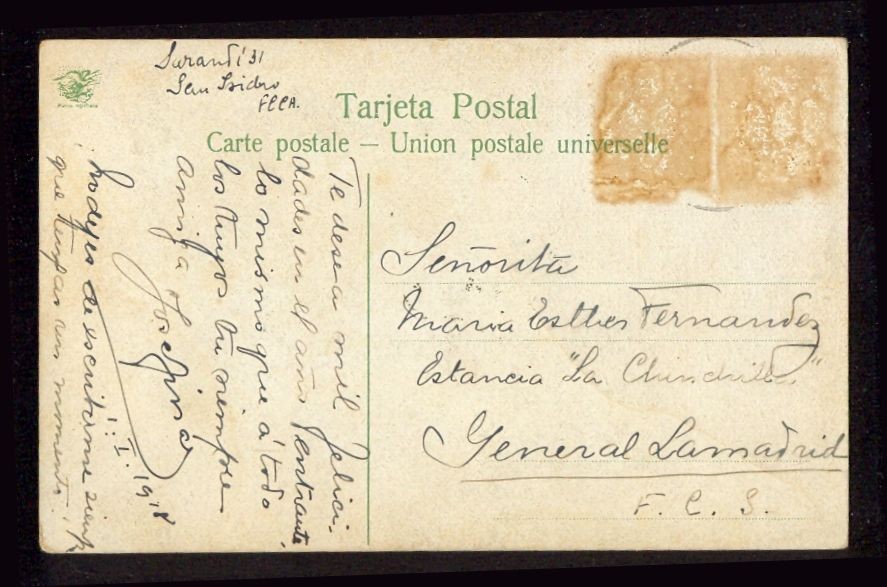 Sarandí 31
San Isidro
F.C.C.A.
Tarjeta Postal
Carte postale — Union postale universelle
Te desea mil felici-
dades en el año entrante
lo mismo que á todo
los tuyos tu siempre
amiga Josefina
1. I. 1918
No dejes de escribirme siempre
que tengas un momento.
Señorita
Maria Esther Fernandez
Estancia "La
General Lamadrid
F. C. S.